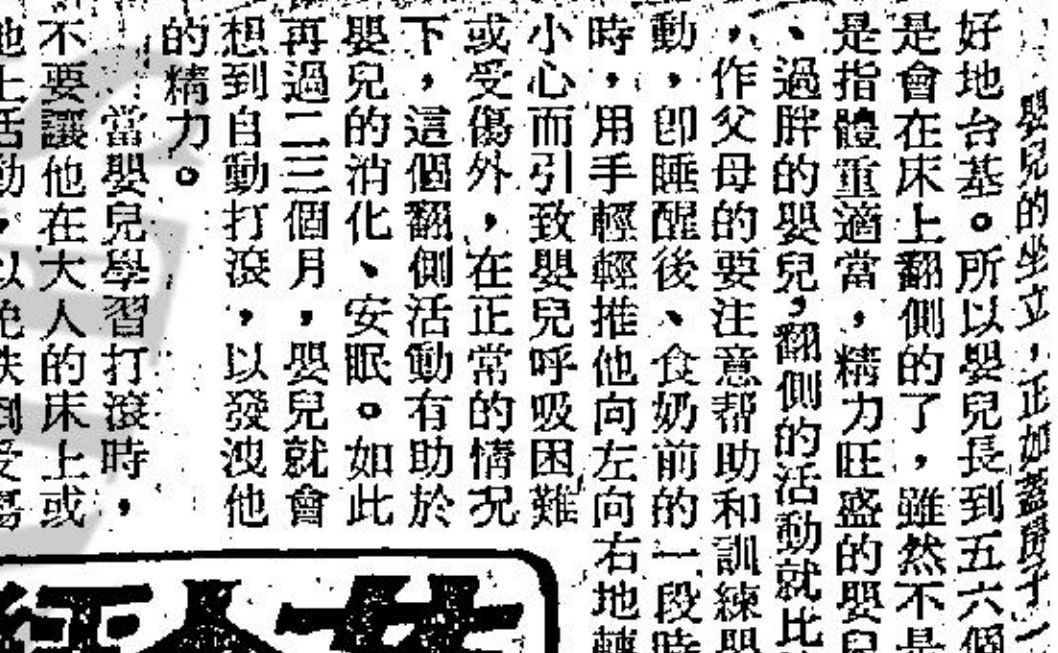 嬰兒的坐立，正如蓋房子一
好地台基。所以嬰兒長到五六個
是會在床上翻側的了，雖然不是
是指體重適當，精力旺盛的嬰兒
、過胖的嬰兒，翻側的活動就比
，作父母的要注意幫助和訓練嬰
動，卽睡醒後、食奶前的一段時
時，用手輕輕推他向左向右地轉
小心而引致嬰兒呼吸困難
或受傷外，在正常的情況
下，這個翻側活動有助於
嬰兒的消化、安眠。如此
再過二三個月，嬰兒就會
想到自動打滾，以發洩他
的精力。
當嬰兒學習打滾時，
不要讓他在大人的床上或
地上活動，以免跌倒受傷